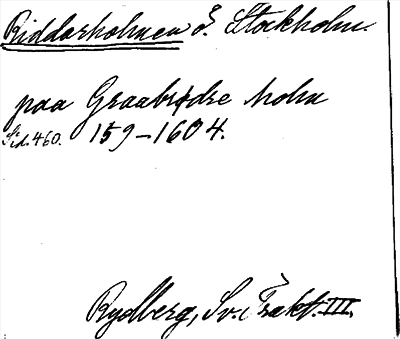 Riddarholmen ö. Stockholm.
paa Graabrødre holm
Sid. 460. 159-1604.
Rydberg, Sv. Trakt. III.